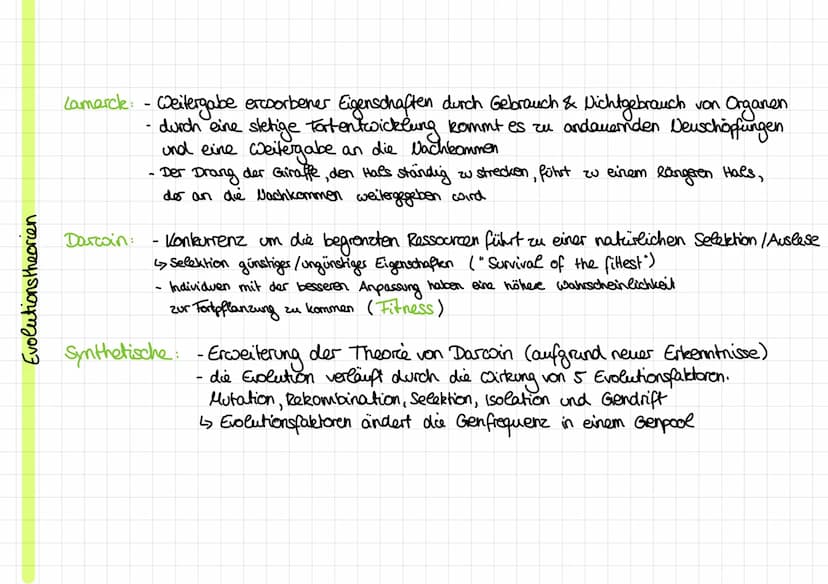 Evolutionstheorien
Lamarck: - Weitergabe erworbener Eigenschaften durch Gebrauch & Nichtgebrauch von Organen
- durch eine stetige Fortentwicklung kommt es zu andauernden Neuschöpfungen
und eine Weitergabe an die Nachkommen
- Der Drang der Giraffe, den Hals ständig zu strecken, führt zu einem längeren Hals,
der an die Nachkommen weitergegeben wird
Darwin: - Konkurrenz um die begrenzten Ressourcen führt zu einer natürlichen Selektion/Auslese
↳ Selektion günstiger/ungünstiger Eigenschaften ("Survival of the fittest")
- Individuen mit der besseren Anpassung haben eine höhere Wahrscheinlichkeit
zur Fortpflanzung zu kommen (Fitness)
Synthetische: - Erweiterung der Theorie von Darwin (aufgrund neuer Erkenntnisse)
- die Evolution verläuft durch die Wirkung von 5 Evolutionsfaktoren:
Mutation, Rekombination, Selektion, Isolation und Gendrift
↳ Evolutionsfaktoren ändert die Genfrequenz in einem Genpool